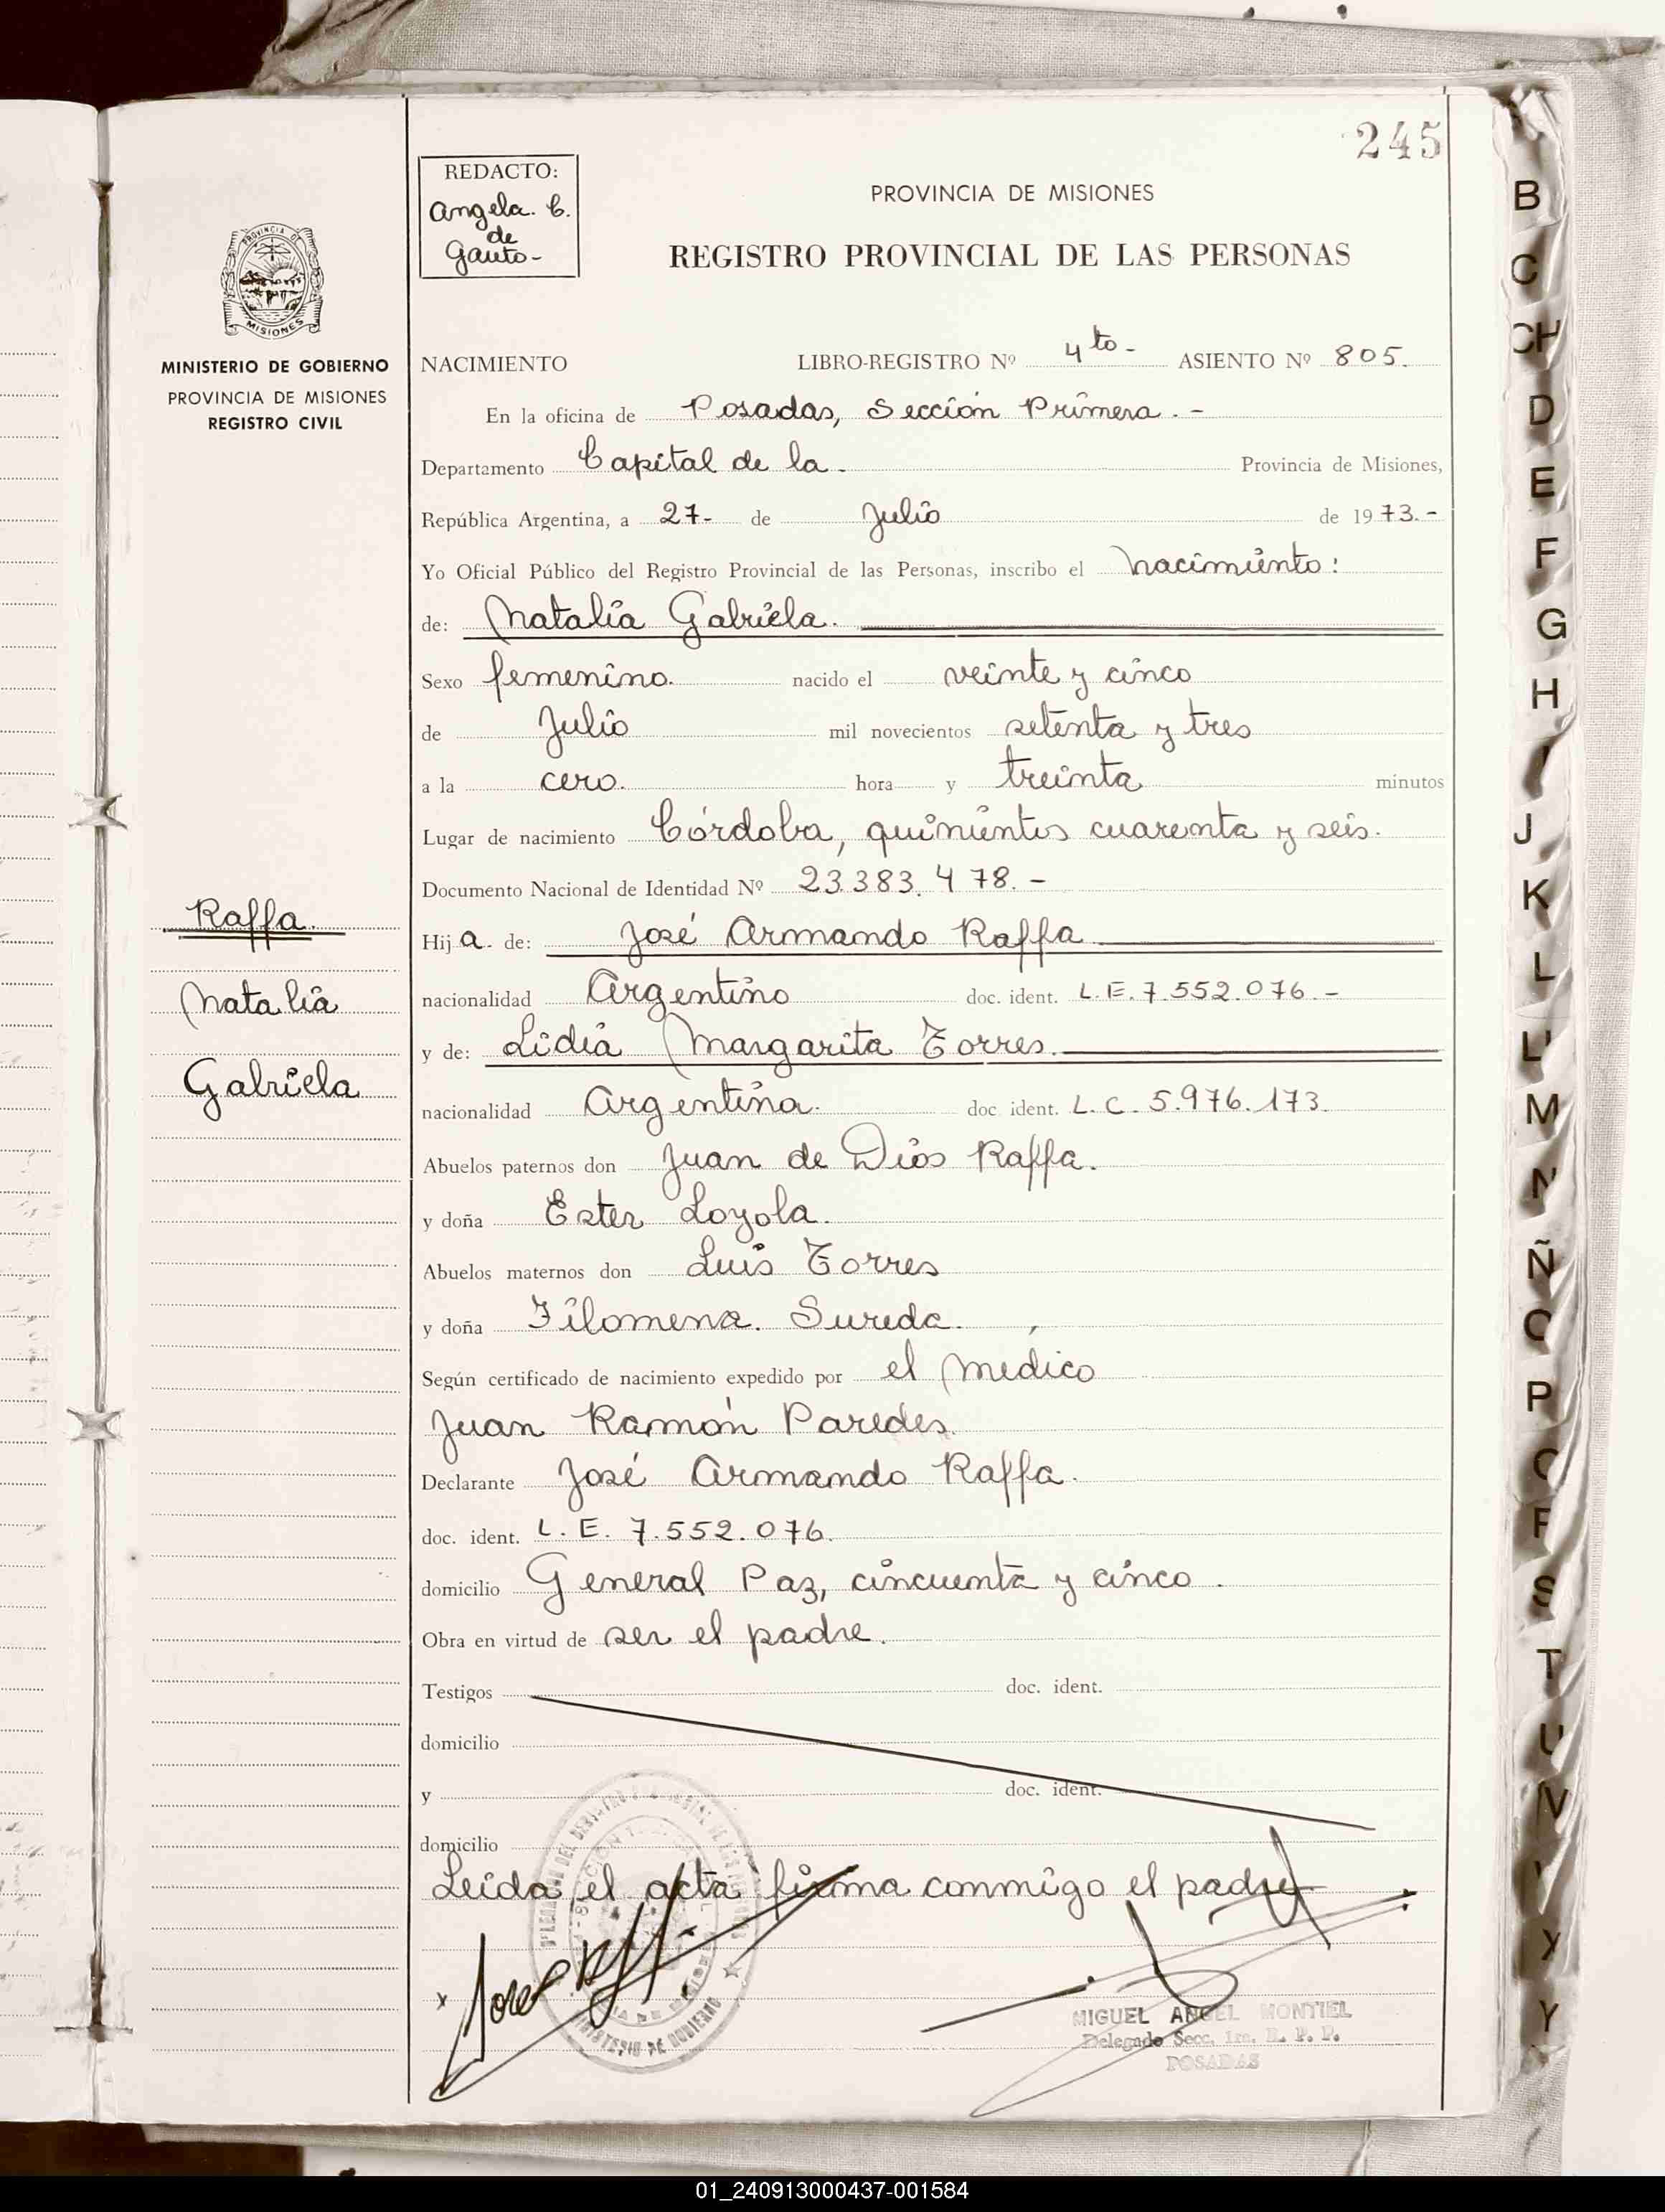 245
REDACTO:
Angela. C.
de
Gauto-
PROVINCIA DE MISIONES
REGISTRO PROVINCIAL DE LAS PERSONAS
PROVINCIA DE
MISIONES
MINISTERIO DE GOBIERNO
PROVINCIA DE MISIONES
REGISTRO CIVIL
NACIMIENTO LIBRO-REGISTRO Nº 4to- ASIENTO Nº 805.
En la oficina de Posadas, Sección Primera.-
Departamento Capital de la- Provincia de Misiones,
República Argentina, a 27- de Julio de 1973.-
Yo Oficial Público del Registro Provincial de las Personas, inscribo el nacimiento:
de: Natalia Gabriela.
Sexo femenino. nacido el veinte y cinco
de Julio mil novecientos setenta y tres
a la cero. hora y treinta minutos
Lugar de nacimiento Córdoba, quinientos cuarenta y seis.
Documento Nacional de Identidad Nº 23.383.478.-
Raffa.
Natalia
Gabriela
Hija- de: José Armando Raffa
nacionalidad Argentino doc. ident. L.E. 7.552.076.-
y de: Lidia Margarita Torres.
nacionalidad Argentina. doc. ident. L.C. 5.976.173.
Abuelos paternos don Juan de Dios Raffa.
y doña Ester Loyola.
Abuelos maternos don Luis Torres
y doña Filomena. Sureda.
Según certificado de nacimiento expedido por el Medico
Juan Ramón Paredes.
Declarante José Armando Raffa.
doc. ident. L.E. 7.552.076.
domicilio General Paz, cincuenta y cinco.
Obra en virtud de ser el padre.
Testigos doc. ident.
domicilio
y doc. ident.
domicilio
Leida el acta firma conmigo el padre
MINISTERIO DE GOBIERNO
MIGUEL ANGEL MONTIEL
Delegado Secc. 1ra. R. P. P.
POSADAS
B
C
CH
D
E
F
G
H
I
J
K
L
LL
M
N
Ñ
O
P
Q
R
S
T
U
V
X
Y
01_240913000437-001584